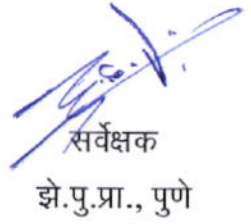 सर्वेक्षक
झे.पु.प्रा., पुणे